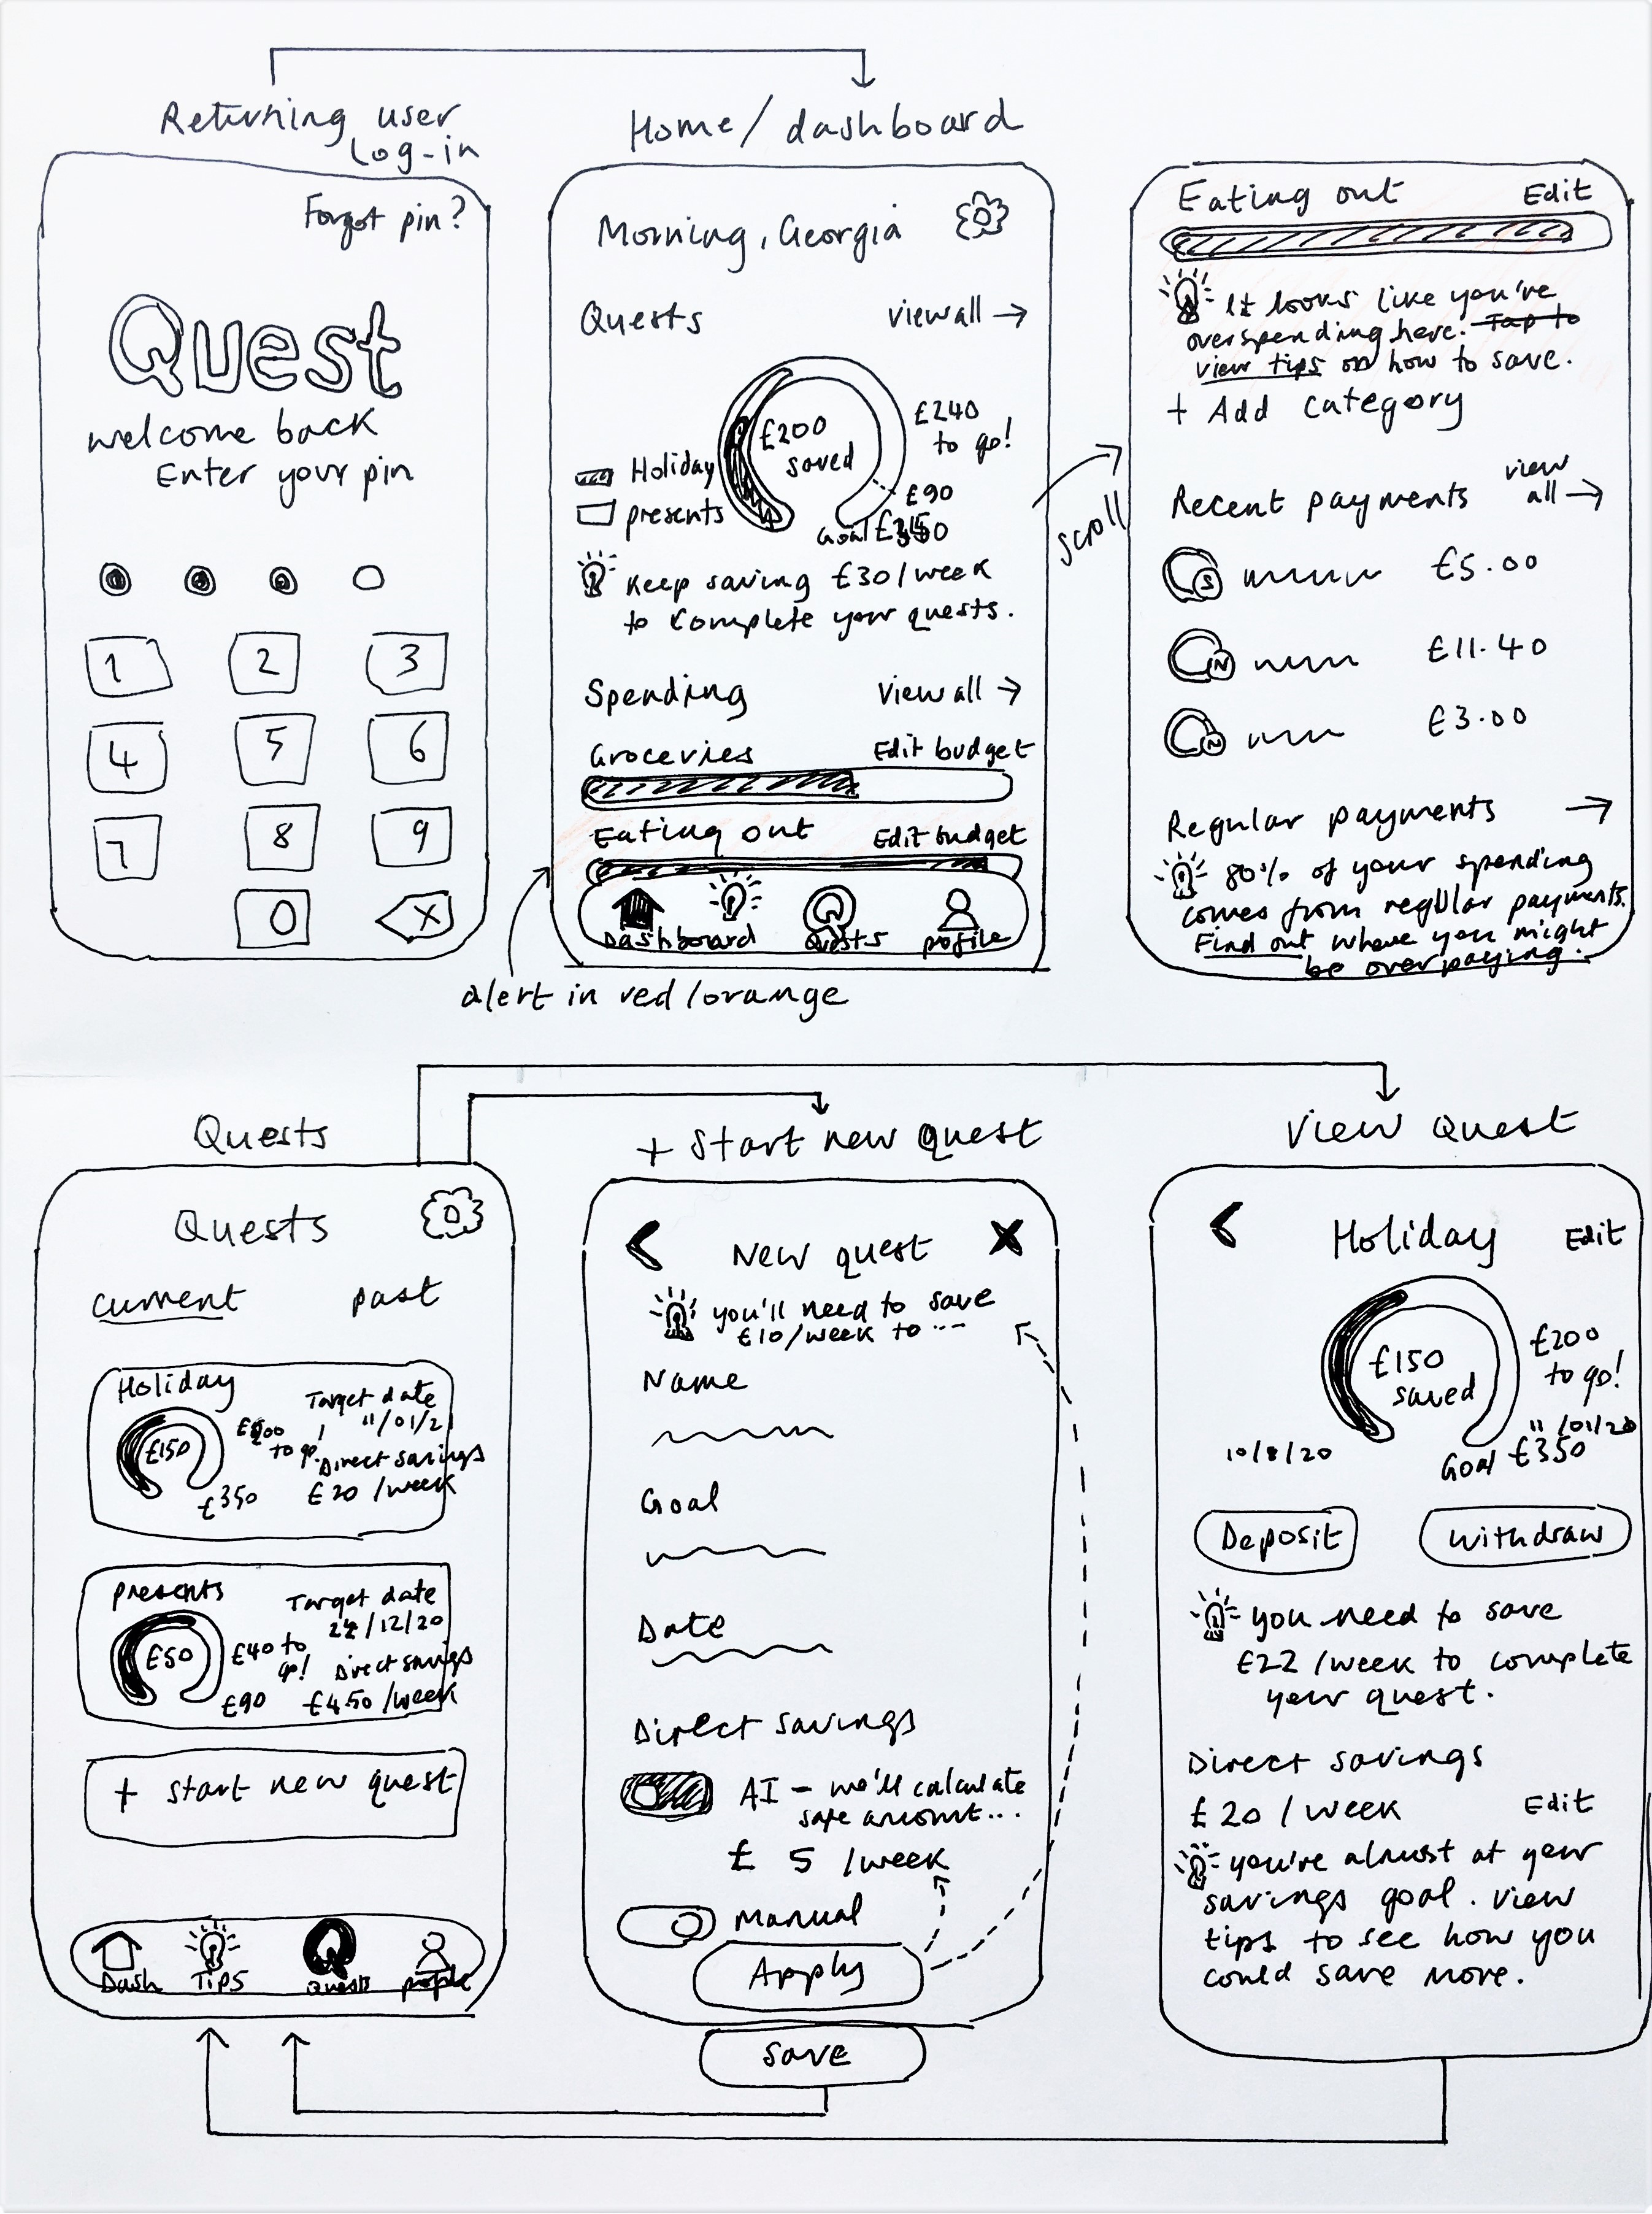 Returning user
Log-in
Forgot pin?
Quest
welcome back
Enter your pin
1 2 3
4 5 6
7 8 9
0 X
Home/dashboard
Morning, Georgia
Quests view all →
£200
saved
£240
to go!
Holiday
presents
£90
Goal
Keep saving £30/week
to complete your quests.
Spending view all →
Groceries Edit budget
Eating out Edit budget
Dashboard Quests profile
alert in red/orange
scroll
Eating out Edit
It looks like you're
overspending here. Tap to
view tips on how to save.
+ Add category
Recent payments view
all →
S £5.00
N £11.40
N £3.00
Regular payments →
80% of your spending
comes from regular payments.
Find out where you might
be overpaying.
Quests
Quests
current past
Holiday
£150
to go!
£350
Target date
11/01/21
Direct savings
£20/week
presents
£50
£40 to
go!
£90
Target date
/12/20
Direct savings
£4.50/week
+ start new quest
Dash Tips Quests profile
+ Start new quest
New quest X
you'll need to save
£10/week to ...
Name
Goal
Date
Direct savings
AI - we'll calculate
safe amount...
£ 5 /week
Manual
Apply
Save
View Quest
Holiday Edit
£150
saved
£200
to go!
10/8/20
11/01/20
Goal £350
Deposit Withdraw
you need to save
£22/week to complete
your quest.
Direct savings
£20/week Edit
you're almost at your
savings goal. View
tips to see how you
could save more.